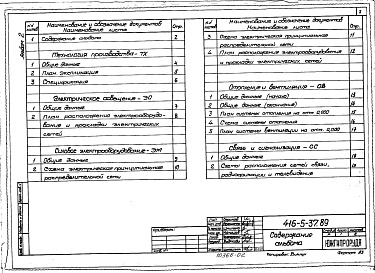 Альбом 2
№ листа
Наименование и обозначение документов
Наименование листа
Стр.
1 Содержание альбома 2
Технология производства - ТХ
1 Общие данные 4
2 План экспликация 5
3 Спецификация 6
Электрическое освещение - ЭО
1 Общие данные 7
2 План расположения электрооборудования и прокладки электрических
сетей
Силовое электрооборудование - ЭМ
1 Общие данные 9
2 Схема электрическая принципиальная 10
распределительной сети
№ листа
Наименование и обозначение документов
Наименование листа
Стр.
3 Схема электрическая принципиальная 11
распределительной сети
4 План расположения электрооборудования 12
и прокладки электрических сетей
Отопление и вентиляция - ОВ
1 Общие данные (начало) 13
2 Общие данные (окончание)
3 План системы отопления на отм. 0.000
4 Схема системы отопления
5 План системы вентиляции на отм. 0.000 17
Связь и сигнализация - СС
1 Общие данные 18
2 Схемы расположения сетей связи,
радиофикации и телевидения
416-5-37.89
Содержание
альбома
ЮЖГИПРОРУДА
Привязан:
10366-02
Копировал
Формат А3